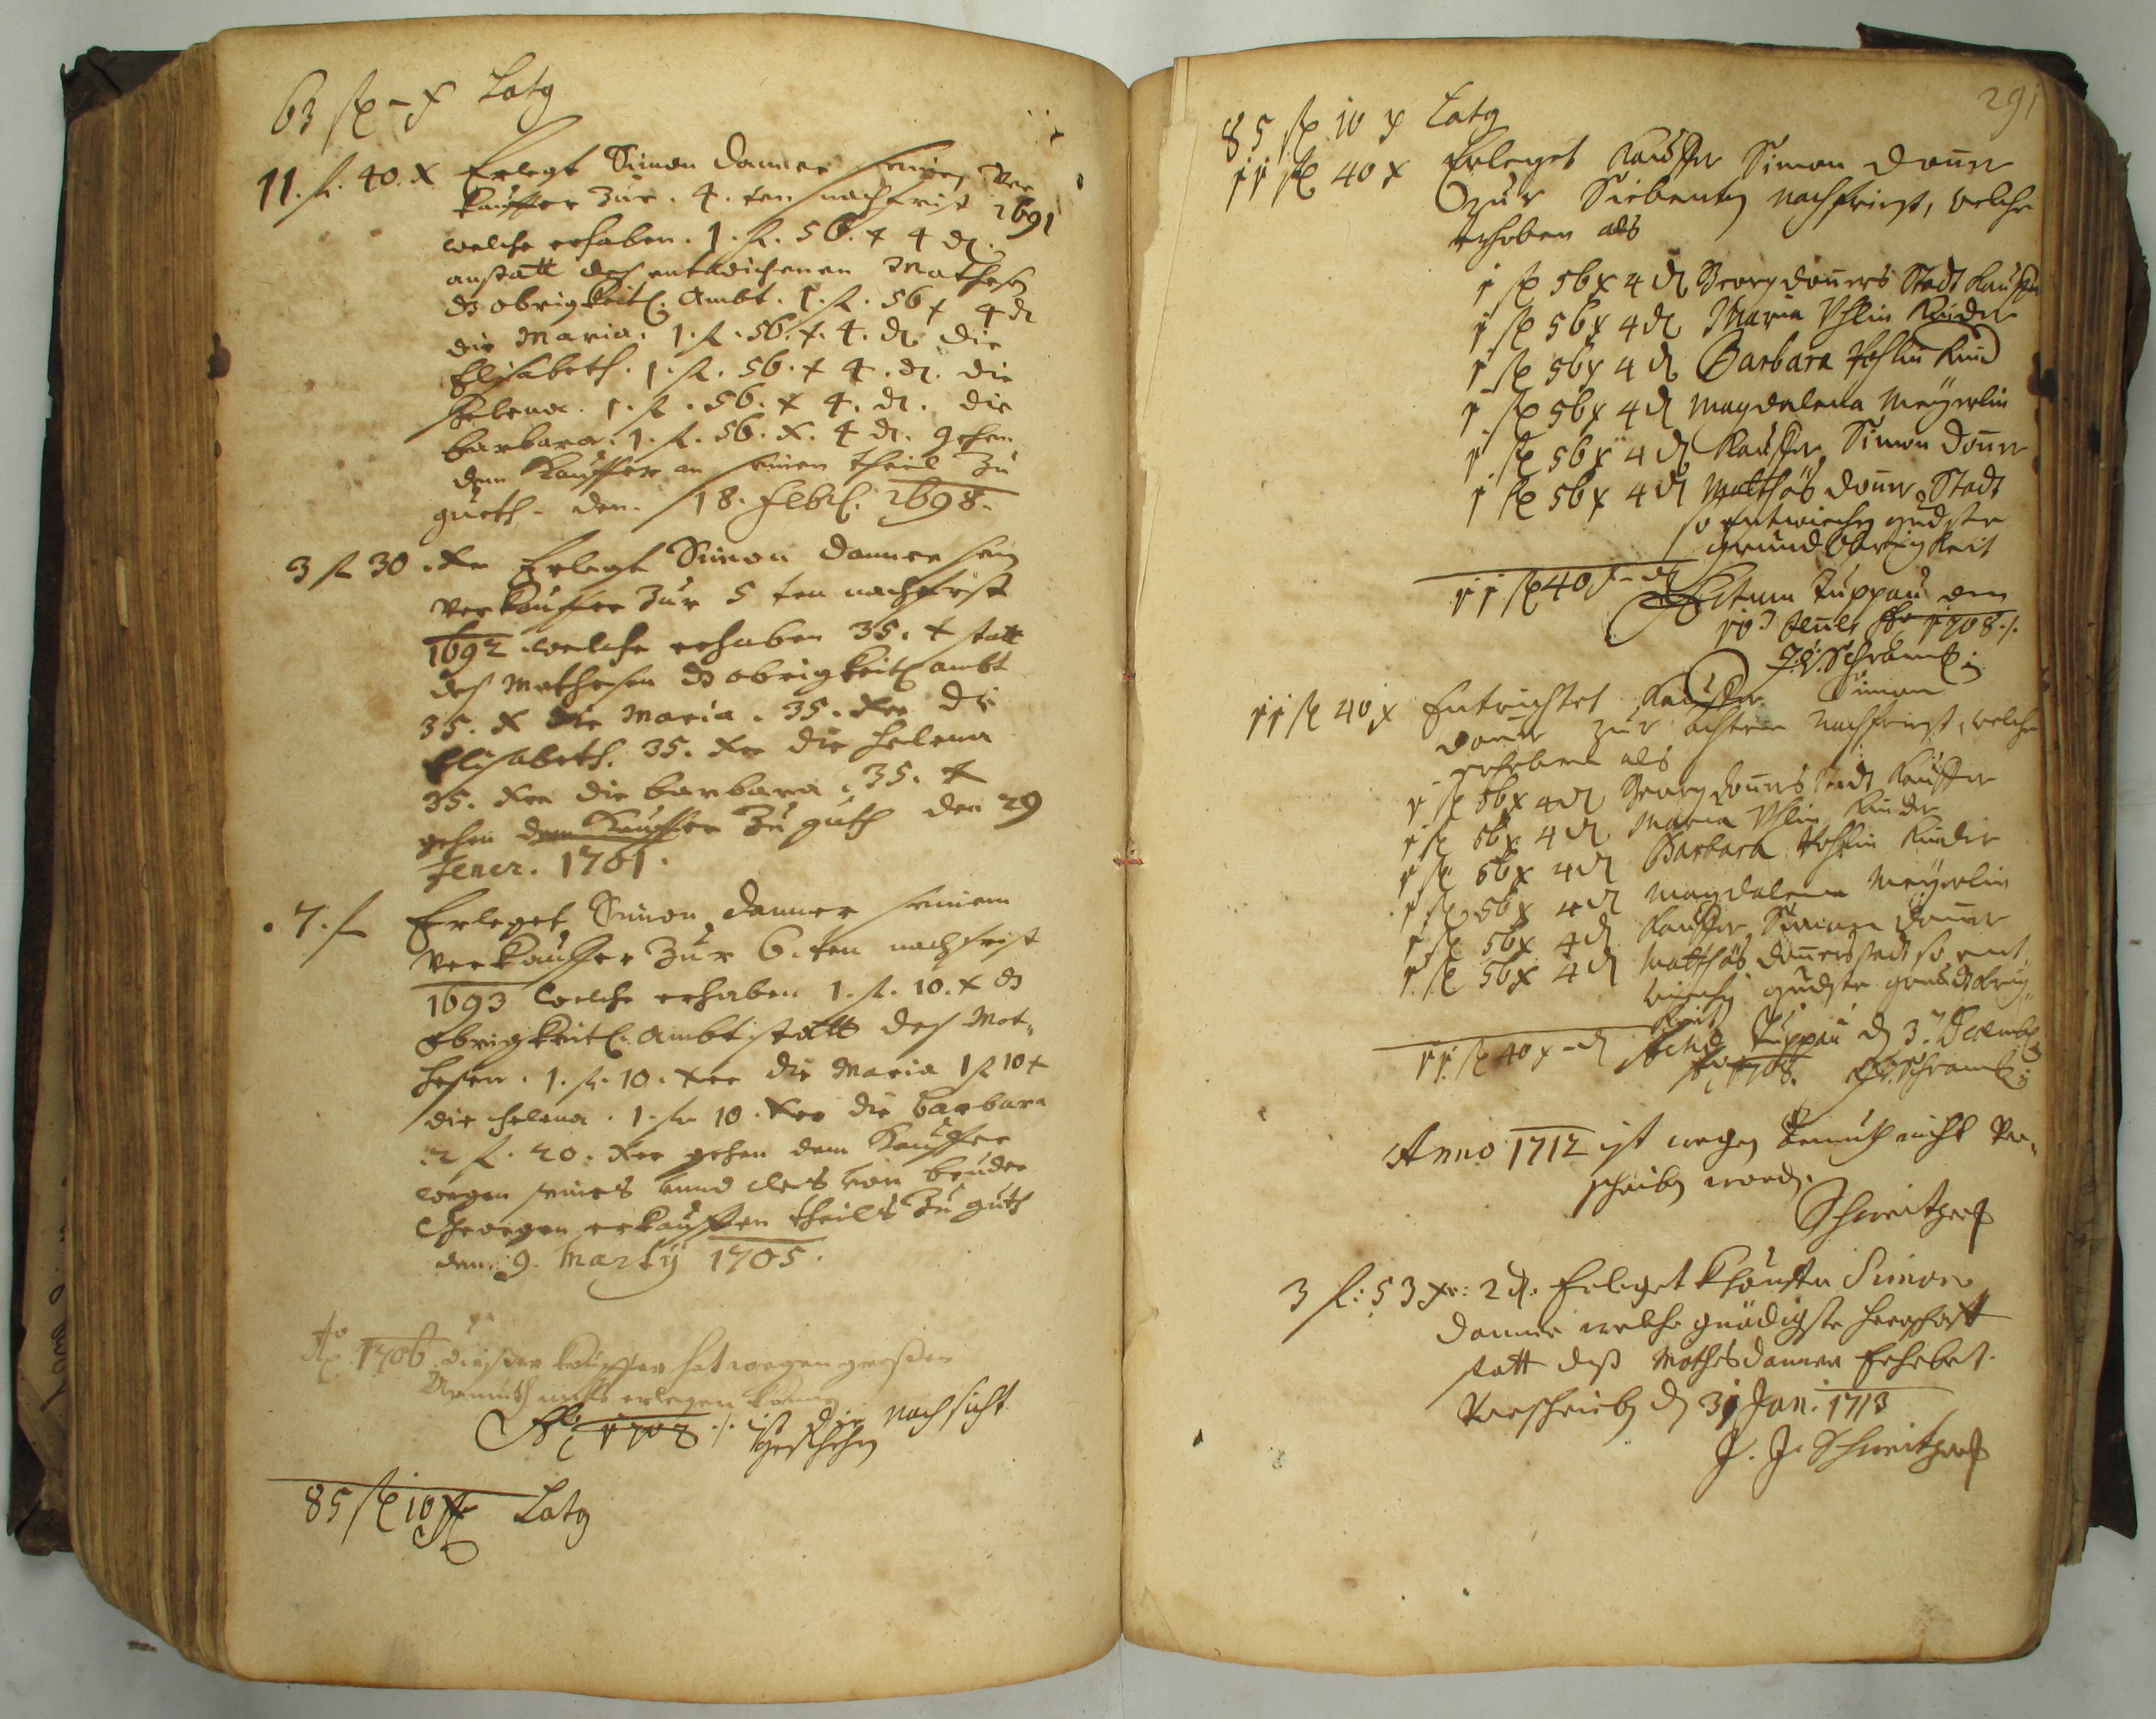 63 fl – x Latg
11. fl. 40. X Erlegt Simon Danner seinen Ver
kauffer zur . 4. ten nachfrist 1691
welche erhaben . 1. fl. 56. x 4 d.
anstatt des entwichenen Mathesen
ds obrigkeitl. Ambt . 1. fl. 56 x 4 d
die Maria . 1. fl. 56. x. 4. d. die
Elisabeth. 1. fl. 56. x 4. d. die
Helena . 1. fl. 56. x 4. d. die
barbara . 1. fl. 56. x. 4 d. gehen
dem Kauffer an seinen theil zu
gueth . den . 18. Febr. 1698.
3 fl 30 . xer Erlegt Simon Danner sein
Verkauffer zur 5 ten nachfrist
1692 . welche erhaben 35. x statt
des Mathesen ds obrigkeitl ambt
35. x die Maria . 35. xer die
Elisabeth. 35. xer die Helena
35. xer die barbara . 35. x
gehen dem Kauffer zu guth den 29
Jener. 1701.
. 7. fl Erleget Simon Danner seinem
Verkauffer zur 6. ten nachfrist
1693 welche erhaben 1. fl. 10. x ds
obrigkeitl. Ambt statt des Mat-
hesen . 1. fl. 10. xer die Maria 1 fl 10 x
die Helena . 1. fl 10. xer die barbara
2 fl. 20. xer gehen dem Kauffer
wegen seines unnd des von bruder
Georgen erkaufften theils zu guth
den 9. Marty 1705.
Ao. 1706 dießer kauffer hat wegen großer
Armuth nichts erlegen können
Ao 1707 ./. ist die nachsicht
geschehen
85 fl 10 x Latg
291
85 fl 10 x Latg
11 fl 40 x Erleget Kauffer Simon Doner
zur Siebenten nachfrist, welche
erhoben als
1 fl 56 x 4 d Georg doners Stadt Kauffer
1 fl 56 x 4 d Maria Kinder
1 fl 56 x 4 d Barbara Kind
1 fl 56 x 4 d Magdalena Meyerlin
1 fl 56 x 4 d Kauffer Simon Doner
1 fl 56 x 4 d Matthäs Doner Stadt
so entwichen gndste
grund Obrigkeit
11 fl 40 x – d Actum Luppau den
Jener Ao 1708 ./.
Schramb
11 fl 40 x Entrichtet Kauffer Simon
Doner zur achten Nachfrist, welche
erhoben als
1 fl 56 x 4 d Georg doners stadt Kauffer
1 fl 56 x 4 d Maria Kinder
1 fl 56 x 4 d Barbara Kinder
1 fl 56 x 4 d Magdalena Meyerlin
1 fl 56 x 4 d Kauffer Simon Doner
1 fl 56 x 4 d Matthäs Doners stadt so ent-
wichen gndste grundobrig-
keit
11 fl 40 x – d Actum Luppau d 3. Decemb
Ao 1708. Schramb
Anno 1712 ist wegen Armuth nicht ver-
schrieben worden.
3 fl: 53 xr: 2 d. Erleget Khauffer Simon
Danner welche gnädigste herrschafft
statt deß Mathes Danner Erhebet.
Verschrieben d 31 Jan: 1713